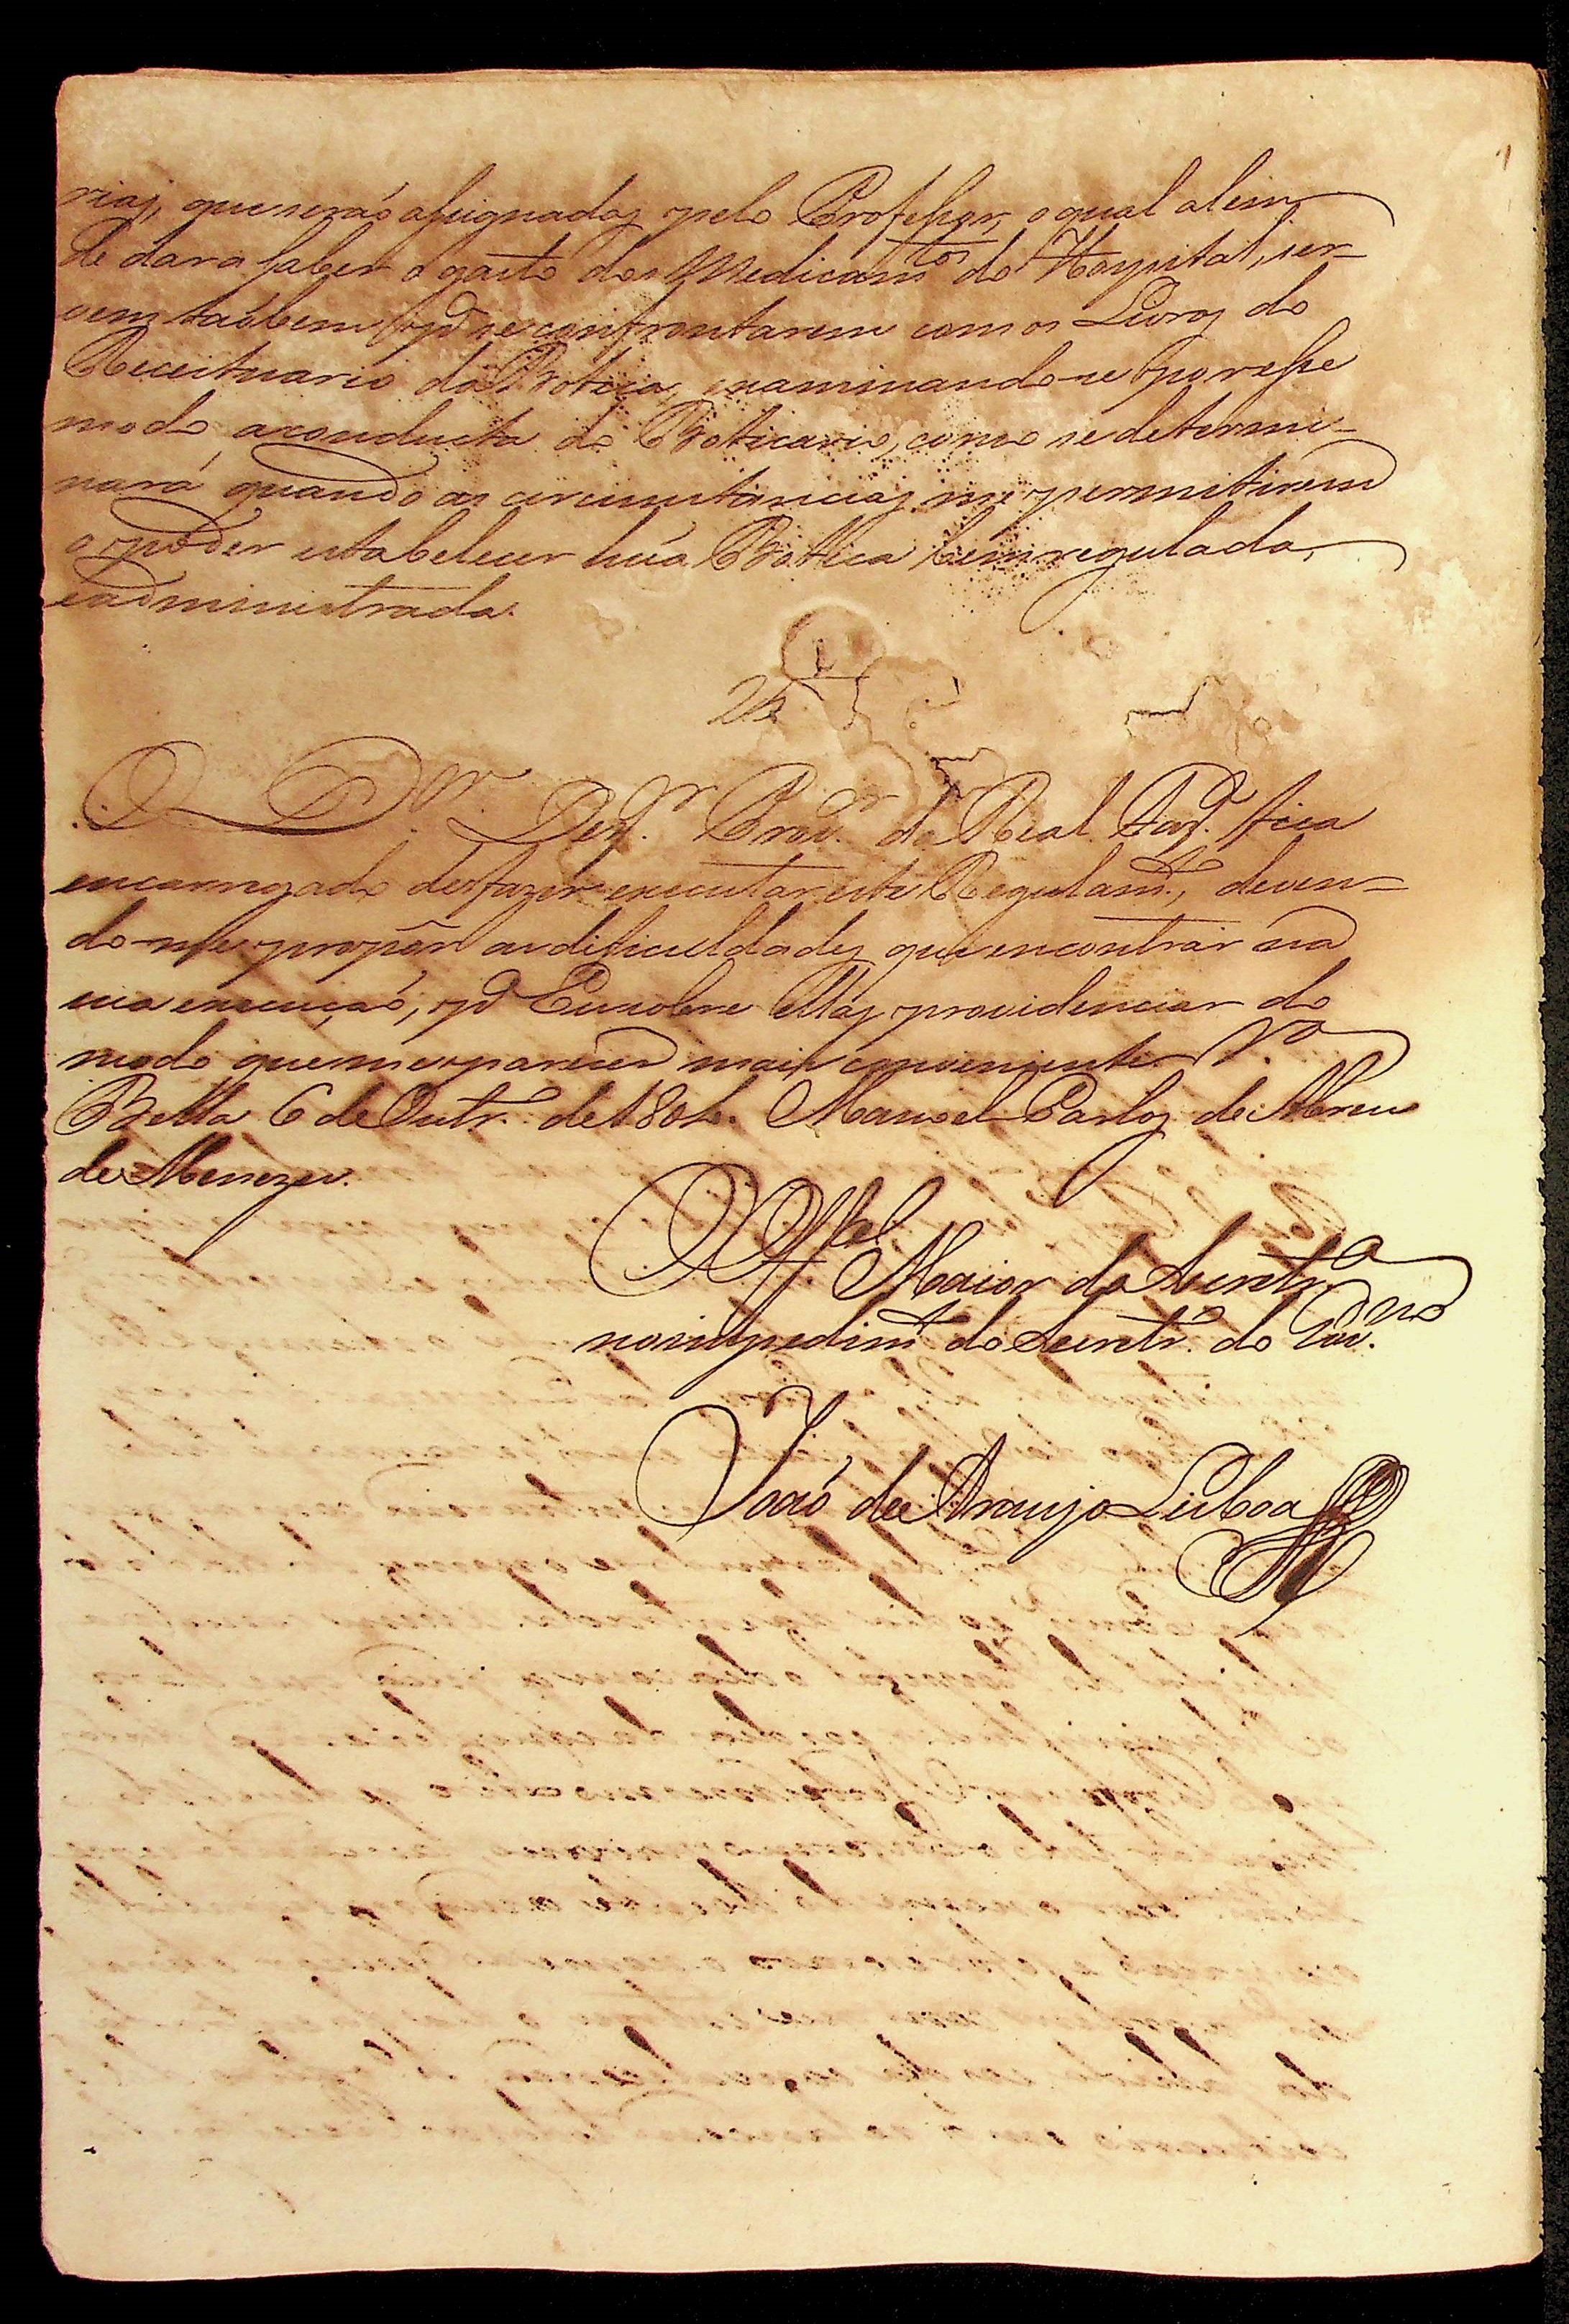 rias, que serão assignadas pelo Professor, o qual alem
de dar a saber o gasto dos Medicam.tos do Hospital, ser-
vem taobem p.a se confrontarem com os Livros do
Receituario da Botica, examinando-se por esse
modo a conducta do Boticario, como se determi-
nará, quando as circunstancias me permitirem
o poder estabelecer húa Botica bem regulada,
e administrada.
O D.or Dez.or Prov.or da Real Faz.a fica
encarregado de fazer executar este Regulam.to, deven-
do-me propôr as dificuldades que encontrar na
sua execução, p.a Eu sobre ellas providenciar do
modo que me parecer mais conveniente. V.a
Bella 6 de Outr.o de 1804. Manoel Carlos de Abreu
de Menezes.
O Off.el Maior da Secretr.a
no impedim.to do Secretr.o do Gov.no
João de Araujo Lisboa